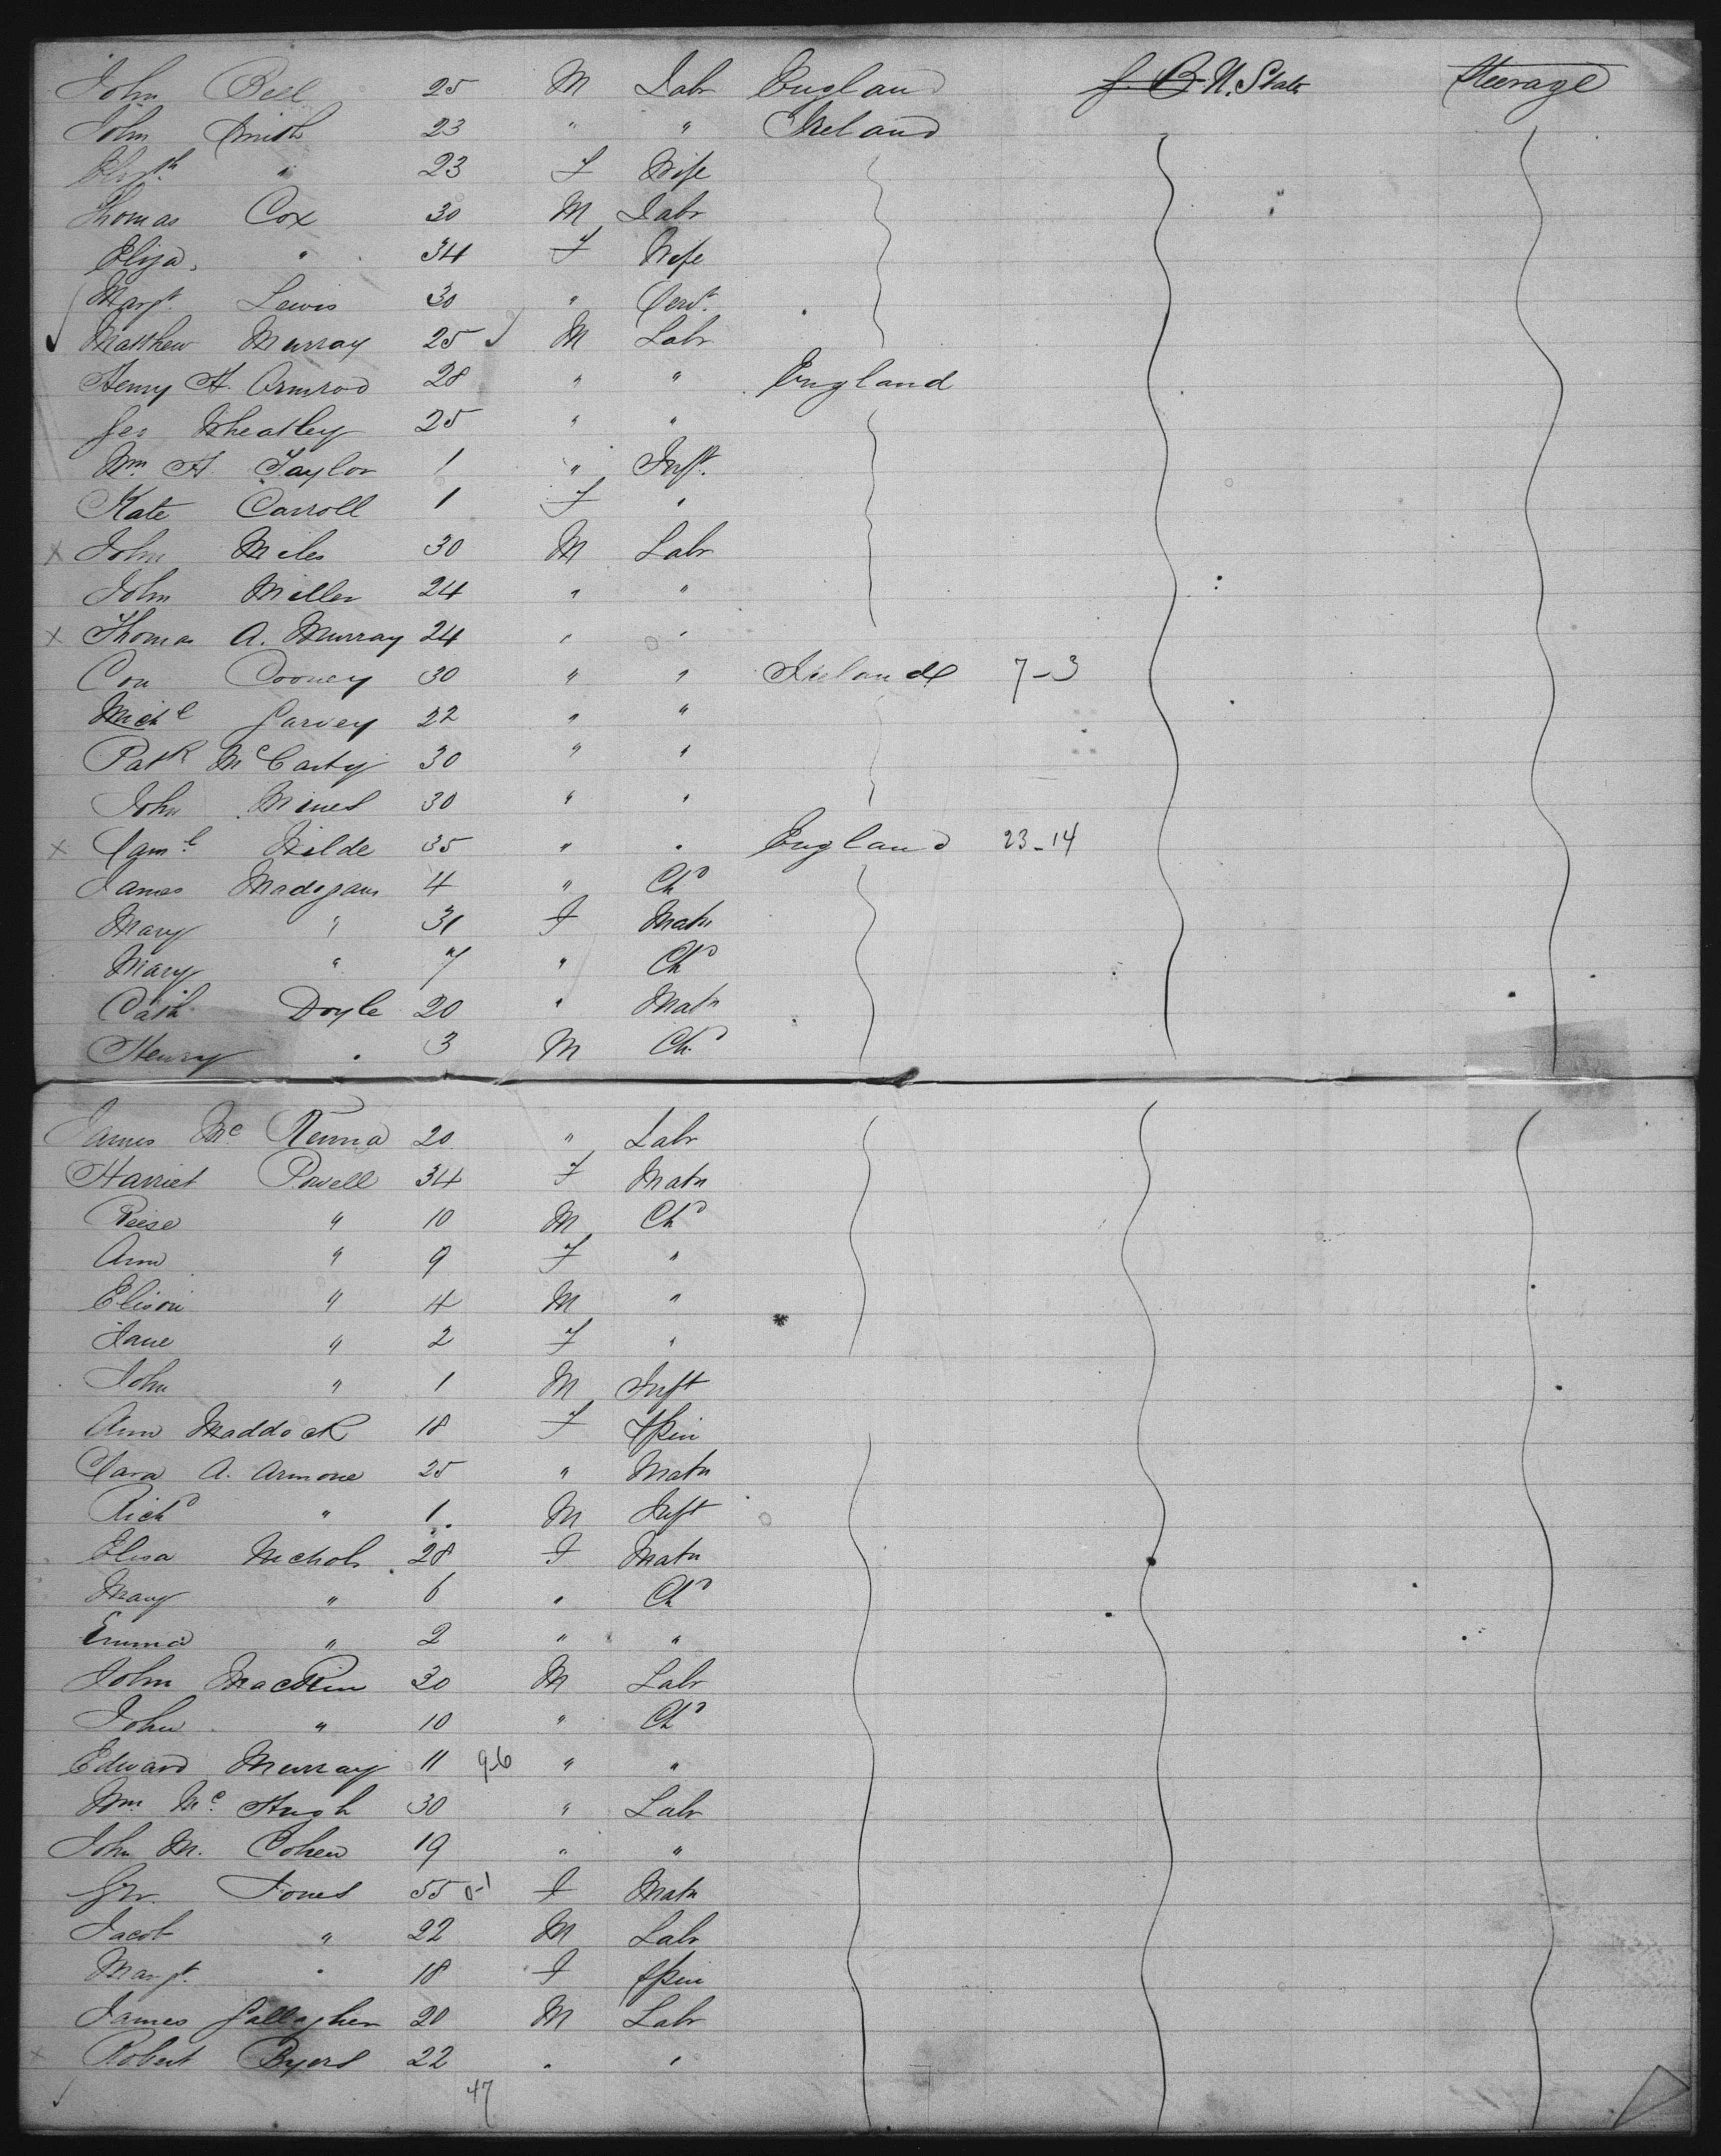 John Bell 25 M Labr England G. B. U. State Steerage
John Smith 23 " " Ireland
" 23 F Wife
Thomas Cox 30 M Labr
Eliza " 34 F Wife
Margt. Lewis 30 " Servt.
Matthew Murray 25 M Labr
Henry H. Ormrod 28 " " England
Geo Wheatley 25 " "
Wm. H Taylor 1 " Inft.
Kate Carroll 1 F "
x John Miles 30 M Labr
John Miller 24 " "
x Thomas A. Murray 24 " "
Con Cooney 30 " " Ireland 7-3
Michl Garvey 22 " "
Patk McCarty 30 " "
John Mines 30 " "
x Saml Wilde 35 " " England 23-14
James Madigan 4 " Chd
Mary " 31 F Matn
Mary " 7 " Chd
Cath Doyle 20 " Matn
Henry " 3 M Chd
James Mc Kenna 20 " Labr
Harriet Powell 34 F Matn
Reese " 10 M Chd
Ann " 9 F "
" 4 M "
Jane " 2 F "
John " 1 M Inft
Ann Maddock 18 F Spin
A. Armone 25 " Matn
Richd " 1 M Inft
Elisa Nichols 28 F Matn
Mary " 6 " Chd
Emma " 2 " "
John Mackin 30 M Labr
John " 10 " Chd
Edward Murray 11 9-6 " "
Wm. Mc. Hugh 30 " Labr
John M. Cohen 19 " "
Jones 55 0-1 F Matn
Jacob " 22 M Labr
Margt. " 18 F Spin
James Gallagher 20 M Labr
x Robert Byers 22 " "
47